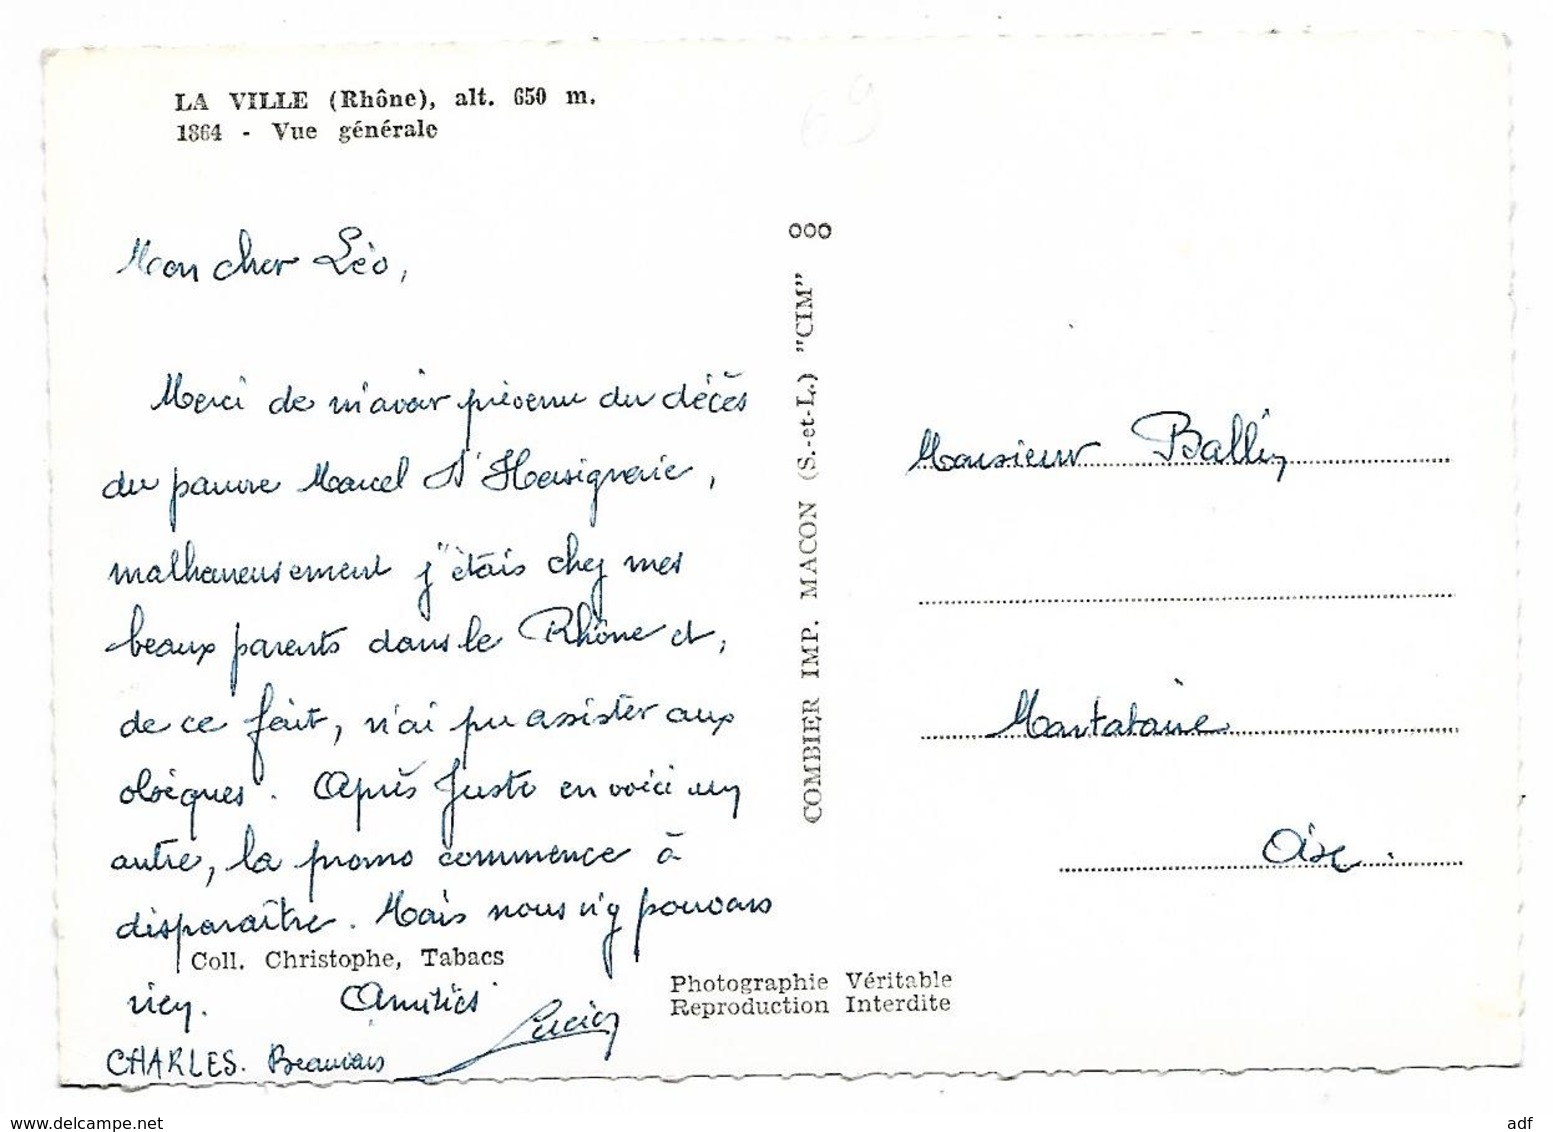 LA VILLE (Rhône), alt. 650 m.
1864 - Vue générale
69
Mon cher Léo,
Merci de m'avoir prévenu du décès
du pauvre Marcel
malheureusement j'étais chez mes
beaux parents dans le Rhône et,
de ce fait, n'ai pu assister aux
obsèques. Après Juste en voici un
autre, la promo commence à
disparaître. Mais nous n'y pouvons
rien. Amitiés
Lucien
CHARLES. Beauvais
Coll. Christophe, Tabacs
Photographie Véritable
Reproduction Interdite
COMBIER IMP. MACON (S.-et-L.) "CIM"
Monsieur Ballin
Montataire
Oise.
www.delcampe.net
adf